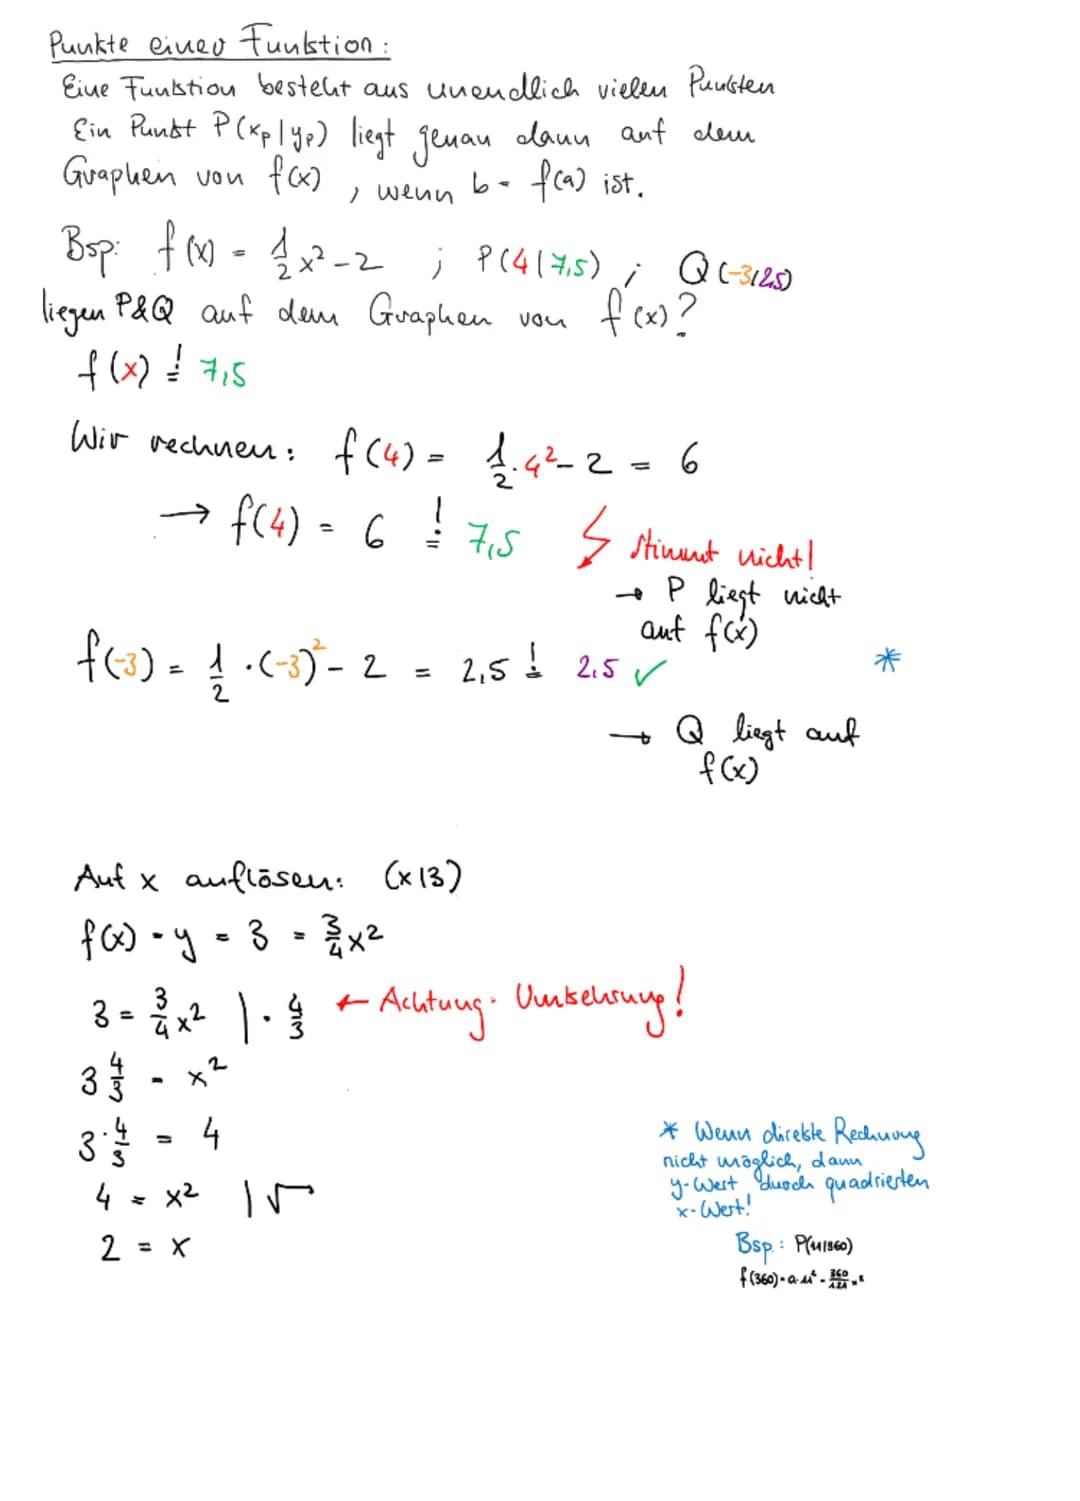 Punkte einer Funktion:
Eine Funktion besteht aus unendlich vielen Punkten
Ein Punkt P(xₚ|yₚ) liegt genau dann auf dem
Graphen von f(x), wenn b = f(a) ist.
Bsp: f(x) = 1/2 x² - 2 ; P(4|7,5) ; Q(-3|2,5)
liegen P&Q auf dem Graphen von f(x)?
f(x) =! 7,5
Wir rechnen: f(4) = 1/2 · 4² - 2 = 6
→ f(4) = 6 =! 7,5 ↯ stimmt nicht!
→ P liegt nicht
auf f(x)
f(-3) = 1/2 · (-3)² - 2 = 2,5 =! 2,5 ✓ *
→ Q liegt auf
f(x)
Auf x auflösen: (x|3)
f(x) = y = 3 = 3/4 x²
3 = 3/4 x² | · 4/3 ← Achtung: Umkehrung!
3 4/3 = x²
3 · 4/3 = 4
4 = x² | √
2 = x
* Wenn direkte Rechnung
nicht möglich, dann
y-Wert durch quadrierten
x-Wert!
Bsp.: P(11|360)
f(360) = a · 11² = 360/121 x²